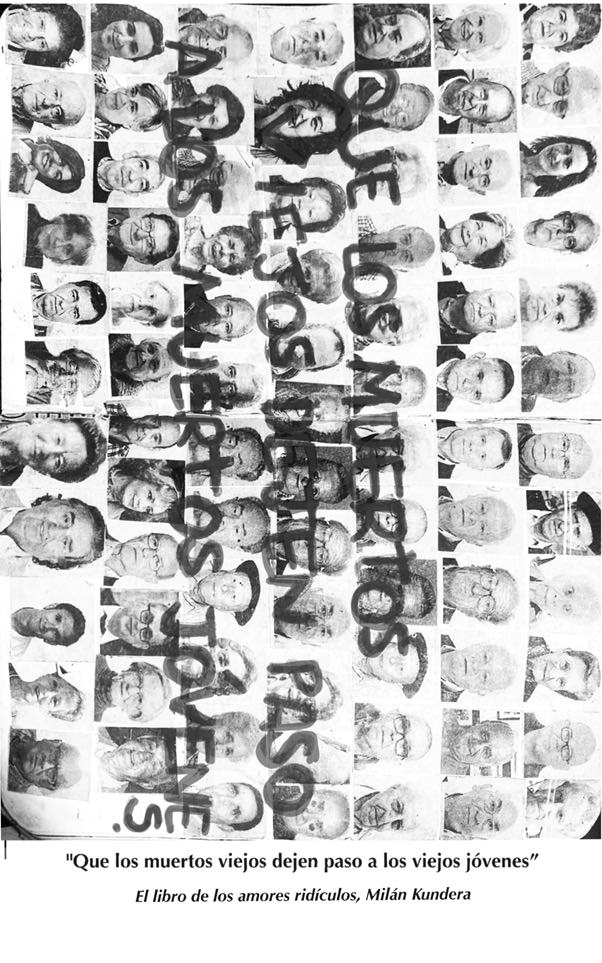 QUE LOS MUERTOS
VIEJOS DEJEN PASO
A LOS MUERTOS JOVENES.
"Que los muertos viejos dejen paso a los viejos jóvenes”
El libro de los amores ridículos, Milán Kundera